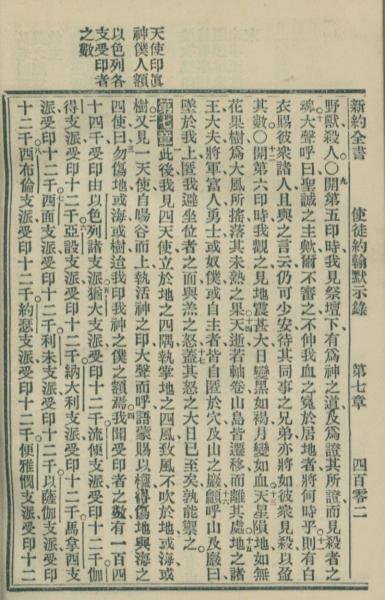 新約全書　使徒約翰默示錄　第七章　四百零二
野獸殺人○九開第五印時我見祭壇下有爲神之道及爲證其所證而見殺者之
魂十大聲呼曰聖誠之主歟爾不審之不伸我血之冤於居地者將何時乎十一則有白
衣賜彼衆諸人且與之言云仍可少安待其同事之兄弟亦將如彼衆見殺以盈
其數○十二開第六印時我觀之見地震甚大日變黑如褐月變如血十三天星隕地如無
花果樹爲大風所搖落其未熟之果十四天逝若軸卷山島皆遷移而離其處十五地之諸
王大夫將軍富人勇士或奴僕或自主者皆自匿於穴及山之巖十六顧呼山及巖曰
墜於我上匿我避坐位者之面與羔之怒十七蓋其怒之大日已至矣孰能禦之
第七章一此後我見四天使立於地之四隅執掌地之四風致風不吹於地或海或
樹二又見一天使自暘谷而上執活神之印大聲而呼語蒙賜以權得傷地與海之
四使三曰勿傷地或海或樹迨我印我神之僕之額焉四我聞受印者之數有一百四
十四千受印由以色列諸支派五猶大支派受印十二千流便支派受印十二千伽
得支派受印十二千六亞設支派受印十二千納大利支派受印十二千馬拿西支
派受印十二千七西面支派受印十二千利未支派受印十二千以薩伽支派受印
十二千八西布倫支派受印十二千約瑟支派受印十二千便雅憫支派受印十二
天使印眞
神僕人額
以色列各
支受印者
之數